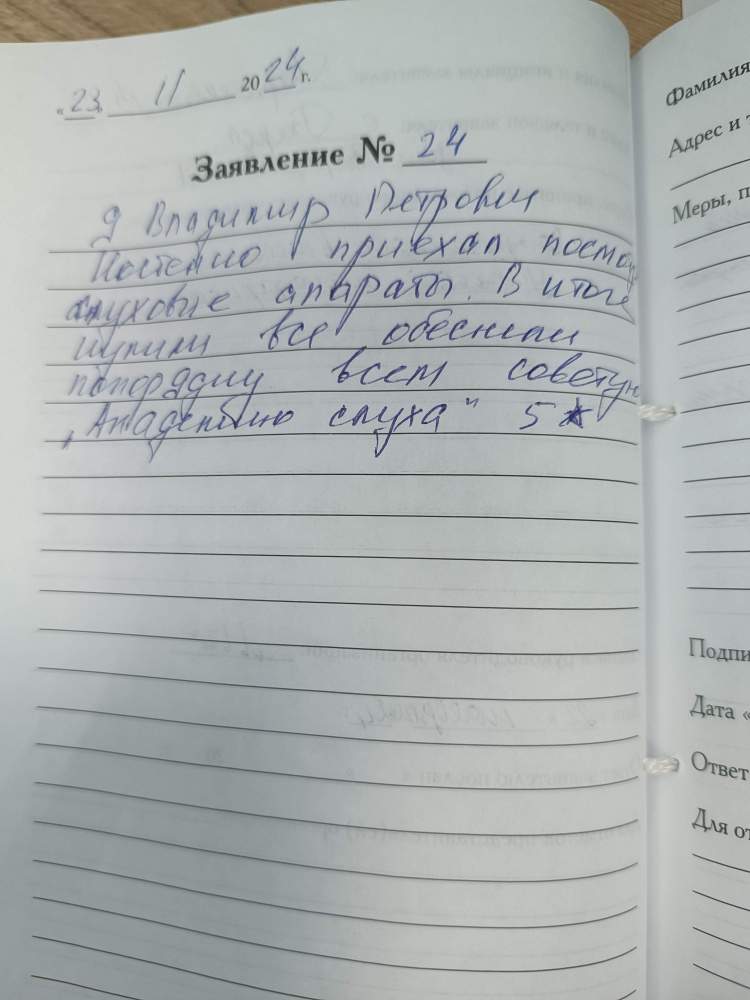 «23» 11 2024 г.
Заявление № 24
Я Владимир Петрович
приехал посмот
слуховые апараты. В итоге
купили все обеснили
попорядку всем советую
„Академию слуха" 5★
Фамилия
Адрес и т
Меры, п
Подпи
Дата «
Ответ
Для от